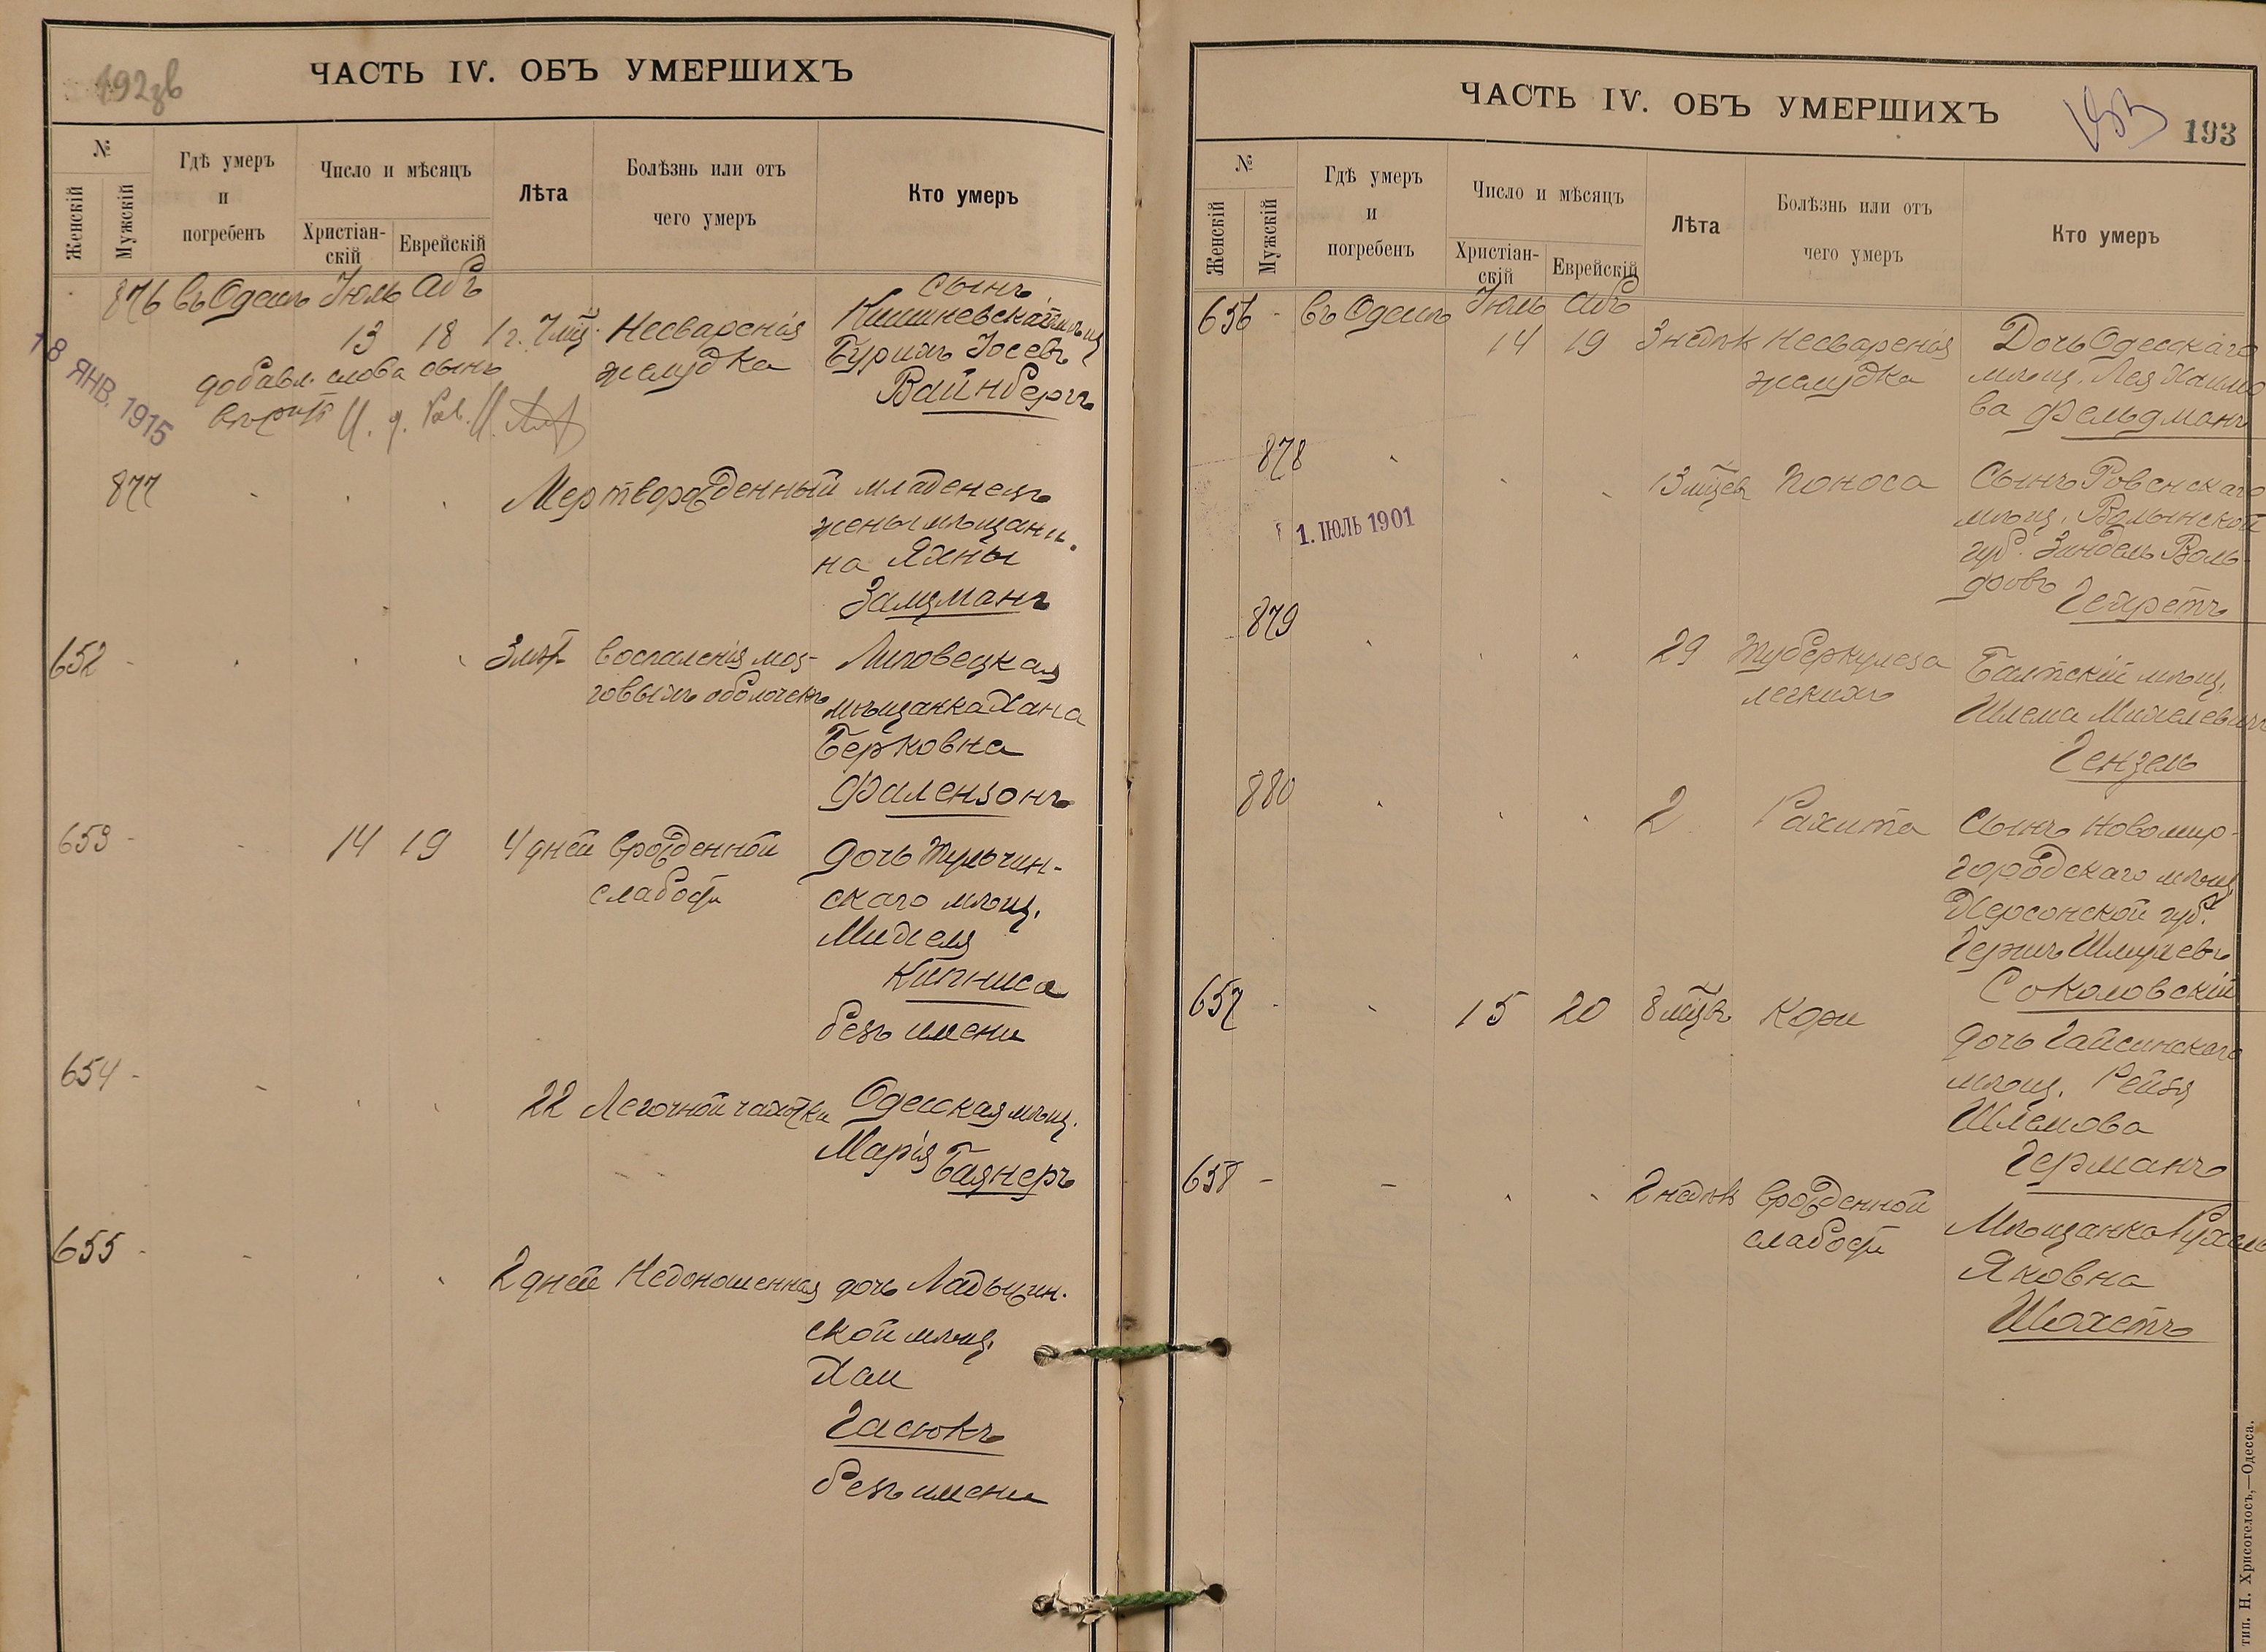 192зв
ЧАСТЬ IV. ОБЪ УМЕРШИХЪ
№
Женскій
Мужскій
Гдѣ умеръ
и
погребенъ
Число и мѣсяцъ
Христіан-
скій
Еврейскій
Лѣта
Болѣзнь или отъ
чего умеръ
Кто умеръ
876 въ Одессѣ Іюль Абъ
13 18 1 г. 7 мц. Несваренія
желудка
Сынъ
Кишиневскаго мѣщ
Бурихъ Іосевъ
Вайнбергъ
добавл. слова сынъ
вѣрить И. д. Рав.
18 ЯНВ. 1915
877 Мертворожденный младенецъ
жены мѣщани-
на Яхны
Залцманъ
652 - 3 лѣт воспаленія моз-
говыхъ оболочекъ
Липовецкая
мѣщанка Хана
Берковна
Фалензонъ
653 - 14 19 4 дней врожденной
слабости
дочь Тульчин-
скаго мѣщ.
Михеля
Кипниса
безъ имени
654 - 22 Легочной чахотки
Одесская мѣщ.
Марія Баянеръ
655 - 2 дней Недоношенная
дочь Ладыжин-
ской мѣщ.
Хаи
Гасюкъ
безъ имени
ЧАСТЬ IV. ОБЪ УМЕРШИХЪ
193
193
№
Женскій
Мужскій
Гдѣ умеръ
и
погребенъ
Число и мѣсяцъ
Христіан-
скій
Еврейскій
Лѣта
Болѣзнь или отъ
чего умеръ
Кто умеръ
656 - въ Одессѣ Іюль Абъ
14 19 3 недѣл Несваренія
желудка
Дочь Одесскаго
мѣщ. Лея Хаимо
ва Фельдманъ
878 13 мцев Поноса
Сынъ Ровенскаго
мѣщ. Волынской
губ. Зиндель Воль-
фовъ Гехретъ
1. ІЮЛЬ 1901
879 29 Туберкулеза
легкихъ
Балтскій мѣщ.
Шлема Михелевичъ
Гензель
880 2 Рахита
Сынъ Новомир-
городскаго мѣщ
Херсонской губ.
Гершъ Шмулевъ
Соколовскій
657 - 15 20 8 мцв Кори
дочь Гайсинскаго
мѣщ. Рейзя
Шлемова
Германъ
658 - 2 недѣль врожденной
слабости
Мѣщанка Рухель
Яковна
Шохетъ
тип. Н. Хрисогелосъ,—Одесса.